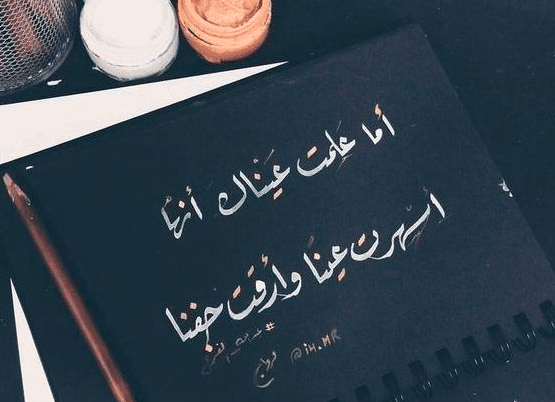 أما عَلِمت عَيْناك أنهاُ
أسهرت عيناً وأرّقت جفنا
@i4.MR